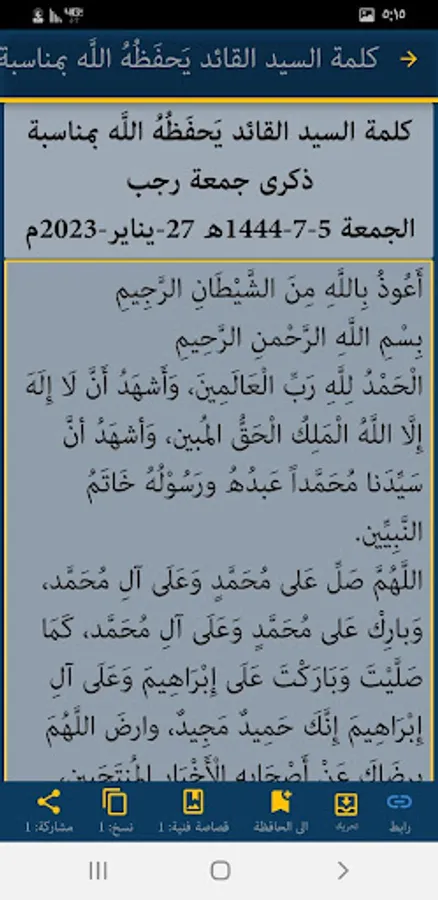 ٥:١٥
كلمة السيد القائد يَحفَظُهُ اللَّه بمناسبة
كلمة السيد القائد يَحفَظُهُ اللَّه بمناسبة
ذكرى جمعة رجب
الجمعة 5-7-1444هـ 27-يناير-2023م
أَعُوذُ بِاللَّهِ مِنَ الشَّيْطَانِ الرَّجِيمِ
بِسْمِ اللَّهِ الرَّحْمنِ الرَّحِيمِ
الْحَمْدُ لِلَّهِ رَبِّ الْعَالَمِينَ، وَأَشهَدُ أَنَّ لَا إِلَهَ
إِلَّا اللَّهُ الْمَلِكُ الْحَقُّ المُبين، وَأشهَدُ أنَّ
سَيِّدَنا مُحَمَّداً عَبدُهُ ورَسُوْلُهُ خَاتَمُ
النَّبِيِّين.
اللَّهُمَّ صَلِّ عَلى مُحَمَّدٍ وَعَلَى آلِ مُحَمَّد،
وَبارِكْ عَلى مُحَمَّدٍ وَعَلَى آلِ مُحَمَّد، كَمَا
صَلَّيْتَ وَبَارَكْتَ عَلَى إِبْرَاهِيمَ وَعَلَى آلِ
إِبْرَاهِيمَ إِنَّكَ حَمِيدٌ مَجِيدٌ، وارضَ اللَّهُمَّ
بِرِضَاكَ عَنْ أَصْحَابِهِ الْأَخْيَارِ المُنتَجَبين،
رابط
تحريك
الى الحافظة
قصاصة فنية: 1
نسخ: 1
مشاركة: 1